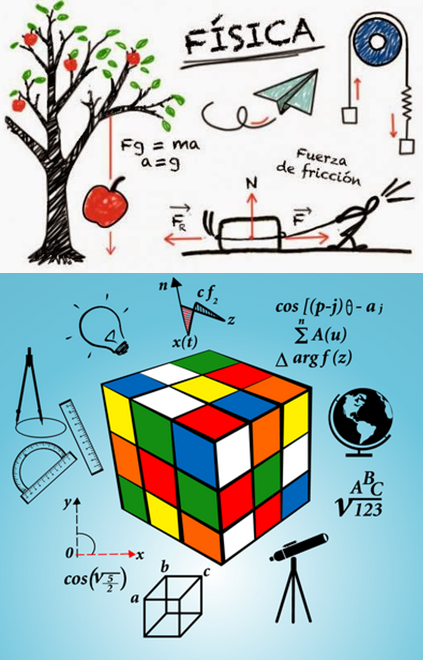 FÍSICA
Fg = ma
a = g
Fuerza
de fricción
N
F_R
F
n
c f₂
z
x(t)
cos [(p-j)θ - a j
n
Σ A(u)
Δ arg f (z)
ABC
√123
y
0
x
cos(√5/2)
b
c
a